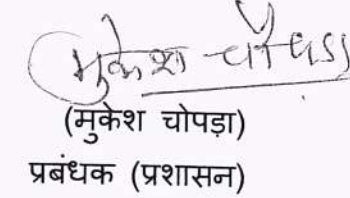 मुकेश चोपड़ा
(मुकेश चोपड़ा)
प्रबंधक (प्रशासन)